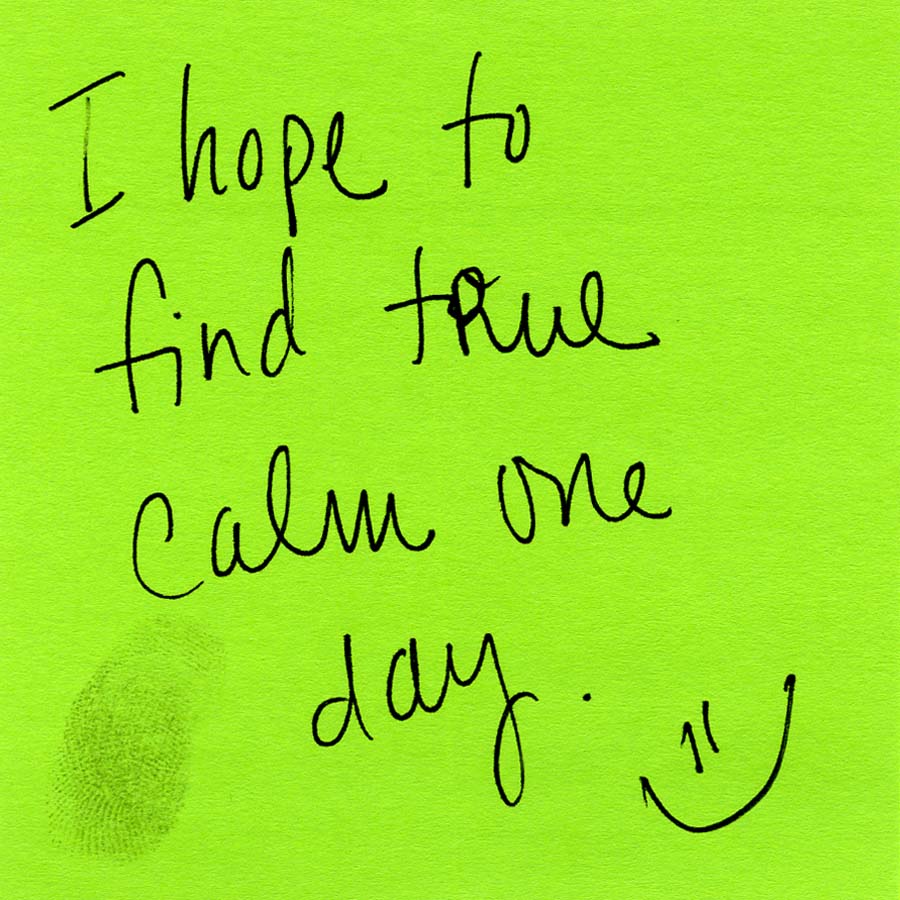 I hope to
find true
calm one
day.